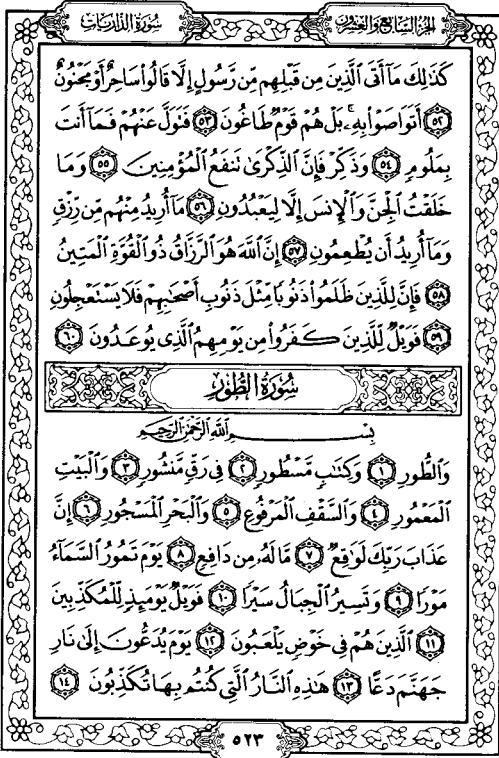 الجزء السابع والعشرون
سورة الذاريات
كَذَٰلِكَ مَآ أَتَى الَّذِينَ مِن قَبْلِهِم مِّن رَّسُولٍ إِلَّا قَالُوا۟ سَاحِرٌ أَوْ مَجْنُونٌ
٥٢ أَتَوَاصَوْا۟ بِهِۦ ۚ بَلْ هُمْ قَوْمٌ طَاغُونَ ٥٣ فَتَوَلَّ عَنْهُمْ فَمَآ أَنتَ
بِمَلُومٍ ٥٤ وَذَكِّرْ فَإِنَّ الذِّكْرَىٰ تَنفَعُ الْمُؤْمِنِينَ ٥٥ وَمَا
خَلَقْتُ الْجِنَّ وَالْإِنسَ إِلَّا لِيَعْبُدُونِ ٥٦ مَآ أُرِيدُ مِنْهُم مِّن رِّزْقٍ
وَمَآ أُرِيدُ أَن يُطْعِمُونِ ٥٧ إِنَّ اللَّهَ هُوَ الرَّزَّاقُ ذُو الْقُوَّةِ الْمَتِينُ
٥٨ فَإِنَّ لِلَّذِينَ ظَلَمُوا۟ ذَنُوبًا مِّثْلَ ذَنُوبِ أَصْحَٰبِهِمْ فَلَا يَسْتَعْجِلُونِ
٥٩ فَوَيْلٌ لِّلَّذِينَ كَفَرُوا۟ مِن يَوْمِهِمُ الَّذِى يُوعَدُونَ ٦٠
سورة الطور
بِسْمِ اللَّهِ الرَّحْمَٰنِ الرَّحِيمِ
وَالطُّورِ ١ وَكِتَٰبٍ مَّسْطُورٍ ٢ فِى رَقٍّ مَّنشُورٍ ٣ وَالْبَيْتِ
الْمَعْمُورِ ٤ وَالسَّقْفِ الْمَرْفُوعِ ٥ وَالْبَحْرِ الْمَسْجُورِ ٦ إِنَّ
عَذَابَ رَبِّكَ لَوَٰقِعٌ ٧ مَّا لَهُۥ مِن دَافِعٍ ٨ يَوْمَ تَمُورُ السَّمَآءُ
مَوْرًا ٩ وَتَسِيرُ الْجِبَالُ سَيْرًا ١٠ فَوَيْلٌ يَوْمَئِذٍ لِّلْمُكَذِّبِينَ
١١ الَّذِينَ هُمْ فِى خَوْضٍ يَلْعَبُونَ ١٢ يَوْمَ يُدَعُّونَ إِلَىٰ نَارِ
جَهَنَّمَ دَعًّا ١٣ هَٰذِهِ النَّارُ الَّتِى كُنتُم بِهَا تُكَذِّبُونَ ١٤
٥٢٣